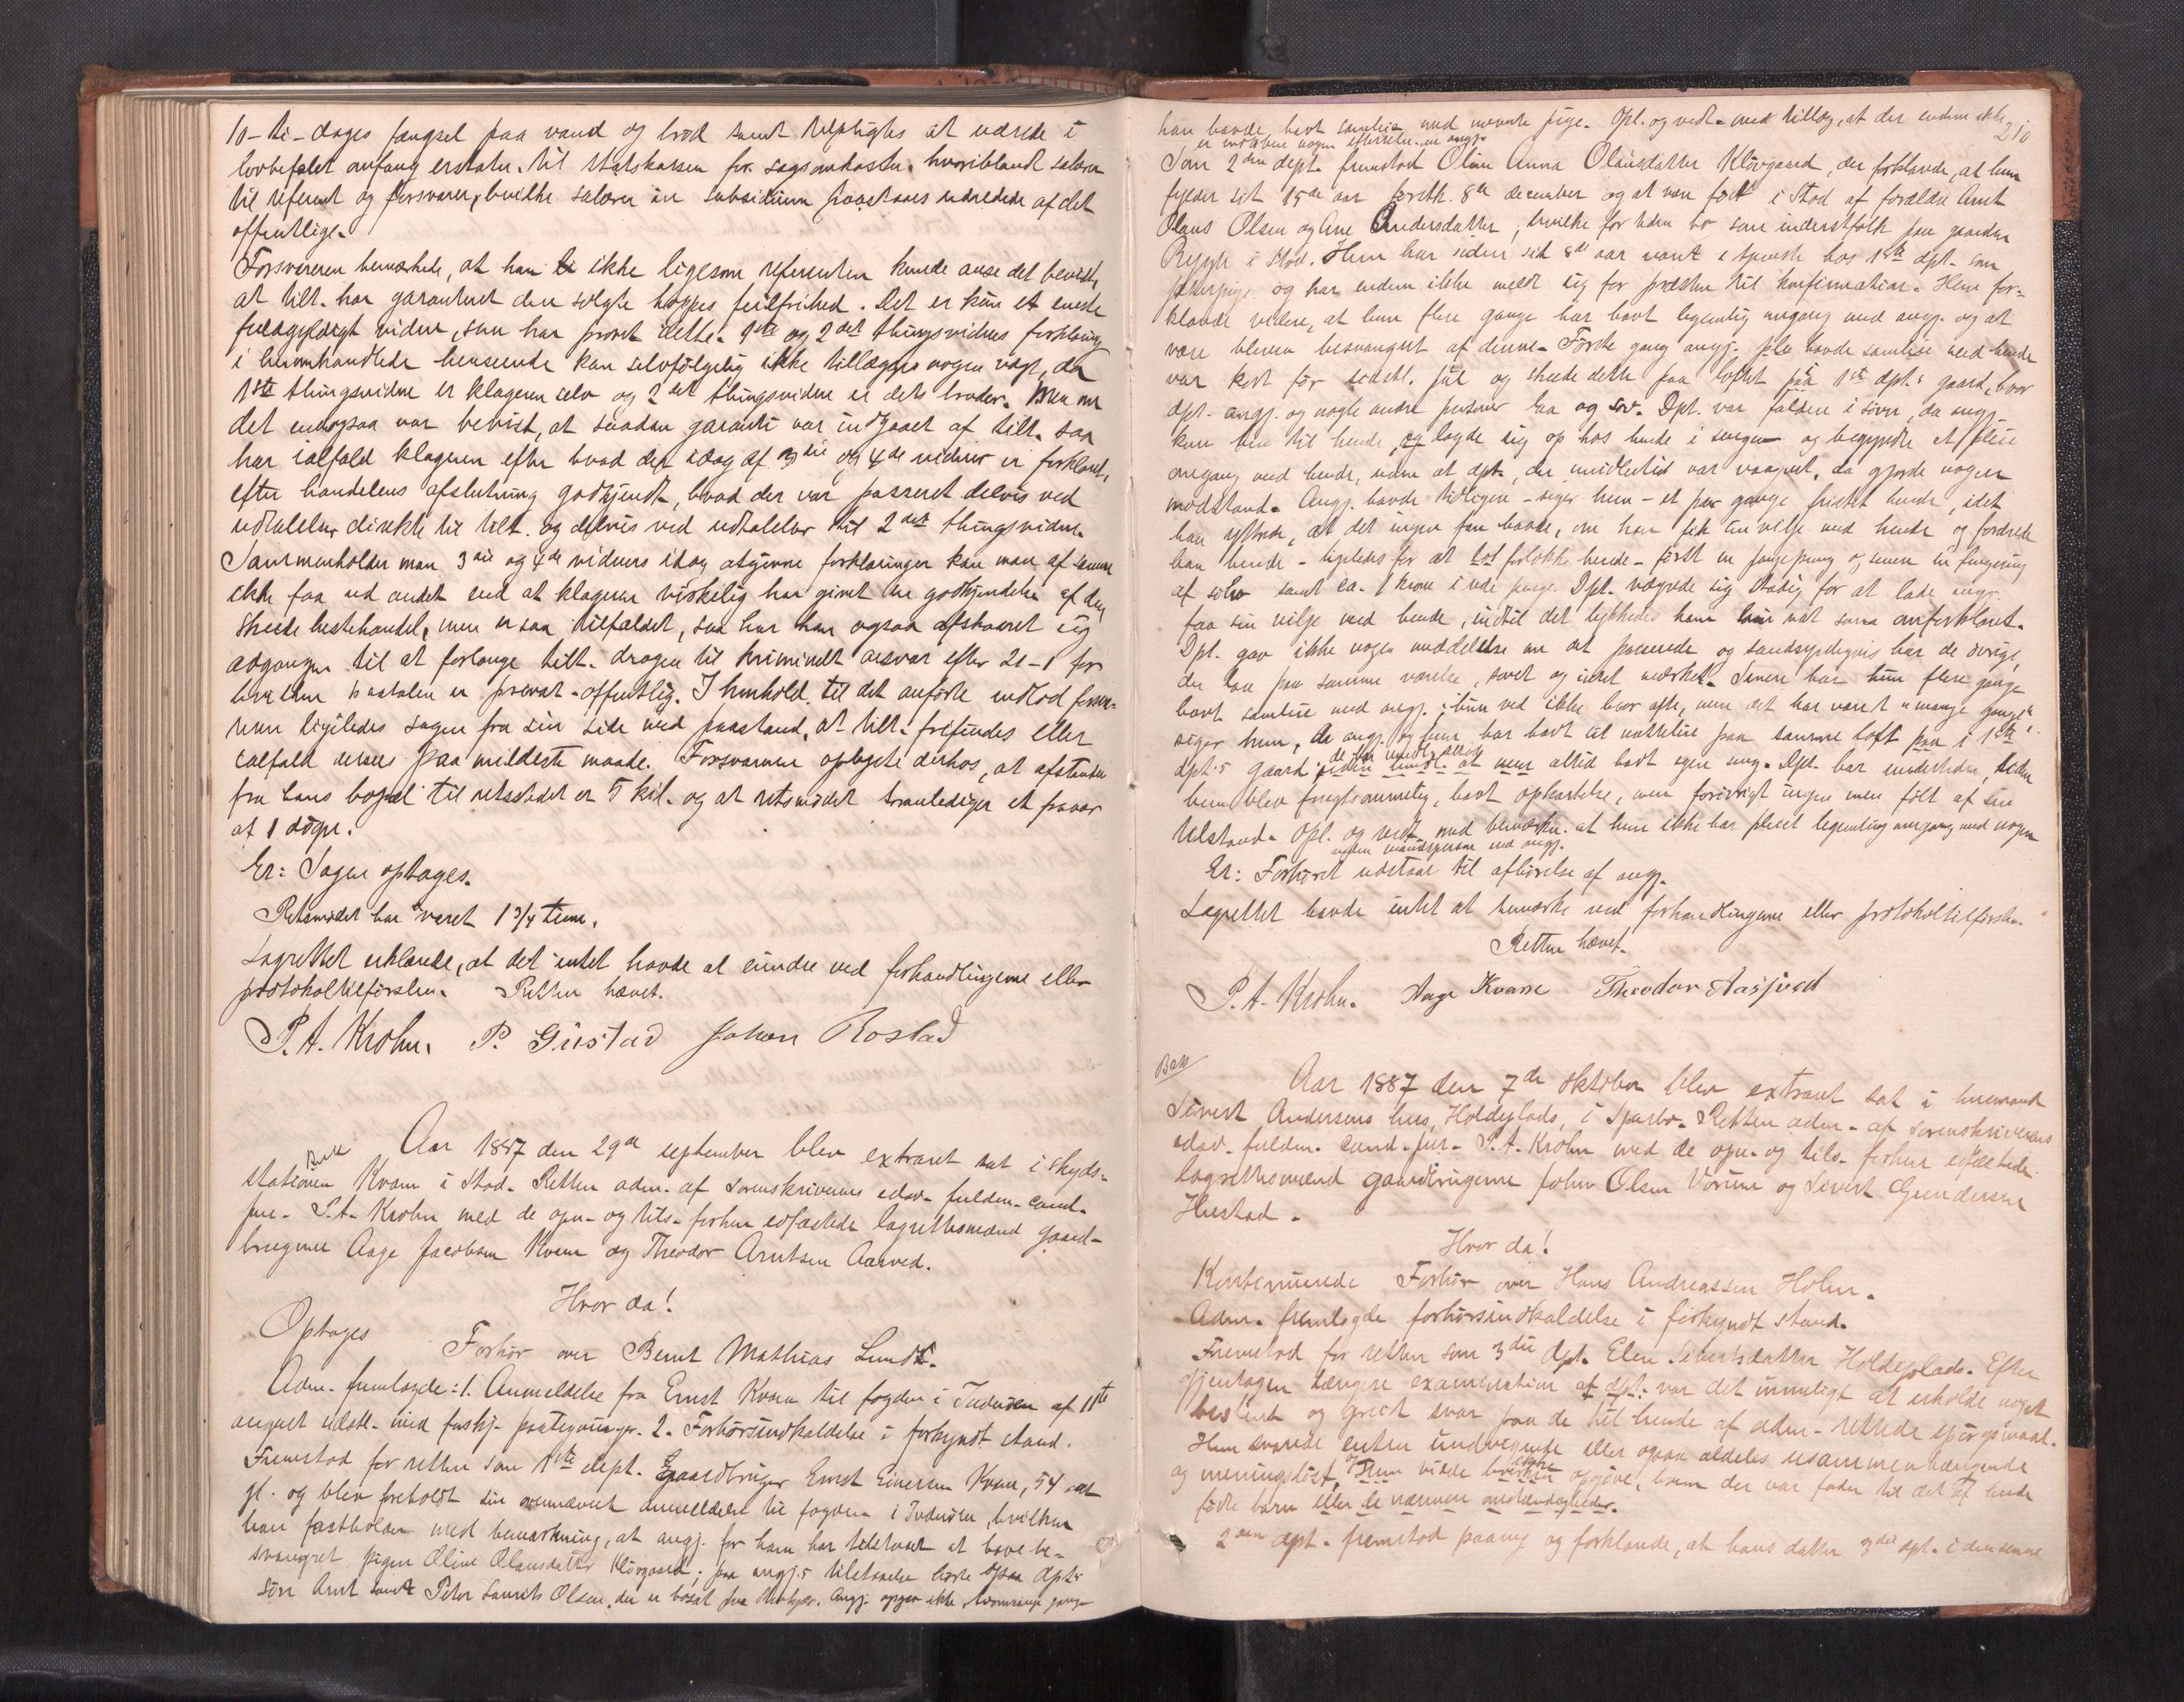 10 - ti - dages fængsel paa vand og brød samt tilpligtes at udrede i
lovbefalet omfang erstatn. til statskassen for sagsomkostn. hvoriblandt salærer
til referent og forsvarer, hvilke salærer in subsidium paastaaes udredede af det
offentlige.
Forsvareren bemærkede, at han ikke ligesom referenten kunde anse det bevist,
at tilt. har garanteret den solgte hoppes feilfrihed. Det er kun et eneste
fuldgyldigt vidne, som har provet dette. 1ste og 2det thingsvidnes forklaring
i heromhandlede henseende kan selvfølgelig ikke tillægges nogen vægt, da
1ste thingsvidne er klageren selv og 2det thingsvidne er dets broder. Men om
det endogsaa var bevist, at saadan garanti var indgaaet af tilt. saa
har ialfald klageren efter hvad der idag af 3die og 4de vidner er forklaret,
efter handelens afslutning godkjendt, hvad der var passeret delvis ved
udtalelser direkte til tilt. og delvis ved udtalelser til 2det thingsvidne.
Sammenholder man 3die og 4de vidners idag afgivne forklaringer kan man af samme
ikke faa ud andet end at klageren virkelig har givet sin godkjendelse af den
skeede hestehandel, men er saa tilfældet, saa har han ogsaa afskaaret sig
adgangen til at forlange tilt. dragen til kriminelt ansvar efter 21-1 for
hvilken paatalen er privat-offentlig. I henhold til det anførte indlod forsva-
reren ligeledes sagen fra sin side med paastand, at tilt. frifindes eller
ialfald ansees paa mildeste maade. Forsvareren oplyste derhos, at afstanden
fra hans bopæl til retsstedet er 5 kil. og at retsmødet foranlediger et fravær
af 1 døgn.
Er: Sagen optages.
Retsmødet har varet 1 3/4 time.
Lagrettet erklærede, at det intet havde at erindre ved forhandlingerne eller
protokoltilførslen. Retten hævet.
P. A. Krohn. P. Gustad Johan Rostad
Aar 1887 den 29de september blev extraret sat i skyds-
stationen Kvam i Stod. Retten adm. af sorenskriverens edsv. fuldm. cand.
jur. P. A. Krohn med de opn. og tils. forhen edfæstede lagrettesmænd gaard-
brugerne Aage Jacobsen Kvam og Theodor Arntsen Aasved.
Hvor da!
Optages
Forhør over Bernt Mathias Lundt.
Adm. fremlagde: 1. Anmeldelse fra Ernst Kvam til fogden i Inderøen af 11te
august udstt. med forskj. paategninger. 2. Forhørsindkaldelse i forkyndt stand.
Fremstod for retten som 1ste dept. gaardbruger Ernst Einersen Kvam, 54 aar
gl. og blev foreholdt sin ovennævnt anmeldelse til fogden i Inderøen, hvilken
han fastholder med bemærkning, at angj. for ham har tilstaaet at have be-
svangret pigen Oline Olausdatter Kløvgaard; paa angj.s tilstaaelse hørte ogsaa dpts
søn Arnt samt Peter Laurits Olsen, der er bosat paa . Angj. opgav ikke, hvormange gange
210
han havde havt samleie med nævnte pige. Opl. og vedt. med tillæg, at der endnu ikke
er indløben nogen efterretn. om angj.
Som 2den dept. fremstod Oline Anna Olausdatter Kløvgaard, der forklarede, at hun
fylder sit 15de aar førstk. 8de december og at være født i Stod af forældre Arnt
Olaus Olsen og Ane Andersdatter, hvilke for tiden bo som inderstfolk paa gaarden
i Stod. Hun har siden sit 8de aar været i tjeneste hos 1ste dpt. som
og har endnu ikke meldt sig for præsten til konfirmation. Hun for-
klarede videre, at hun flere gange har havt legemlig omgang med angj. og at
være bleven besvangret af denne. Første gang angj. havde samleie med hende
var kort før sidstl. jul og skeede dette paa loftet paa 1ste dpt.s gaard, hvor
dpt. angj. og nogle andre personer laa og sov. Dpt. var falden i søvn, da angj.
kom hen til hende, og lagde sig op hos hende i sengen og begyndte at pleie
omgang med hende, uden at dpt., der imidlertid var vaagnet, da gjorde nogen
modstand. Angj. havde tidligere - siger hun - et par gange fristet hende, idet
han yttrede, at det ingen fare havde, om han fik sin vilje med hende og forærede
han hende - ligeledes for at forlokke hende - først en pengepung og senere en fingerring
af sølv samt ca. 1 krone i rede penge. Dpt. vægrede sig stadig for at lade angj.
faa sin vilje med hende, indtil det lykkedes ham hin nat som anforklaret.
Dpt. gav ikke nogen meddelelse om det passerede og sandsynligvis har de øvrige,
der laa paa samme værelse, sovet og intet mærket. Senere har hun flere gange
havt samleie med angj.; hun ved ikke hvor ofte, men det har været "mange gange"
siger hun, da angj. og hun har havt sit natteleie paa samme loft paa i 1ste
dpt.s gaard altid havt egen seng. Dpt. har undertiden, siden
hun blev frugtsommelig, havt opkastelse, men forøvrigt ingen men følt af sin
tilstand. Opl. og vedt. med bemærkn. at hun ikke har pleiet legemlig omgang med nogen
anden mandsperson end angj.
Er: Forhøret udstaar til afhørelse af angj.
Lagrettet havde intet at bemærke ved forhandlingerne eller protokoltilførslen.
Retten hævet.
P. A. Krohn. Aage Kvam Theodor Aasved
Aar 1887 den 7de oktober blev extraret sat i husmand
Sivert Andersens hus, Holdeplads, i Sparbu. Retten adm. af sorenskriverens
edsv. fuldm. cand. jur. P. A. Krohn med de opn. og tils. forhen edfæstede
lagrettesmænd gaardbrugerne John Olsen Vørum og Sivert Gundersen
Hustad.
Hvor da!
Kontinuerede Forhør over Hans Andreassen Holm.
Adm. fremlagde forhørsindkaldelse i forkyndt stand.
Fremstod for retten som 3die dpt. Elen Sivertsdatter Holdeplads. Efter
gjentagen længere examination af dpt. var det umuligt at erholde noget
bestemt og greit svar paa de til hende af adm. rettede spørgsmaal.
Hun svarede enten undvigende eller ogsaa aldeles usammenhængende
og meningsløst, og Hun vilde ikke opgive, hvem der var fader til det af hende
fødte barn eller de nærmere omstændigheder.
2den dpt. fremstod paany og forklarede, at hans datter 3die dpt. i den senere